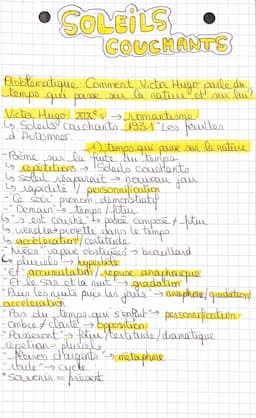 SOLEILS
COUCHANTS
Problématique: Comment Victor Hugo parle du
temps qui passe sur la nature et sur lui?
Victor Hugo XIXe s → romantisme
↳ Soleils couchants 1931 "Les feuilles
d'Automne"
1) temps qui passe sur la nature
-Poème sur la fuite du temps
↳ répétitions → Soleils couchants
↳ soleil réapparait → nouveau jour
↳ rapidité / personnification
-"Ce soir" pronom démonstratif
-"Demain" → temps / futur
↳ "s'est couché" ↳ passé composé ≠ futur
↳ viendra → projette dans le temps
↳ accélération / certitude
-"Nuées" vapeur obstruées → brouillard
↳ pluriels → hyperbole
-"Et" accumulation / reprise anaphorique
-Et le soir et la nuit → gradation
-Puis les nuits puis les jours → anaphore / gradation/
accélération
-"Pas du temps qui s'enfuit → personnification
-ombre / clarté → opposition
-"Passeront" → futur / certitude / dramatique
répétition → pluriel
-"fleuves d'argents" → métaphore
-"roule" → cycle